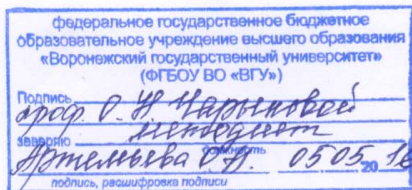 федеральное государственное бюджетное
образовательное учреждение высшего образования
«Воронежский государственный университет»
(ФГБОУ ВО «ВГУ»)
Подпись
проф. О. Н. Чарыковой
заверяю
должность
Артемьева О. 05 05 20
подпись, расшифровка подписи